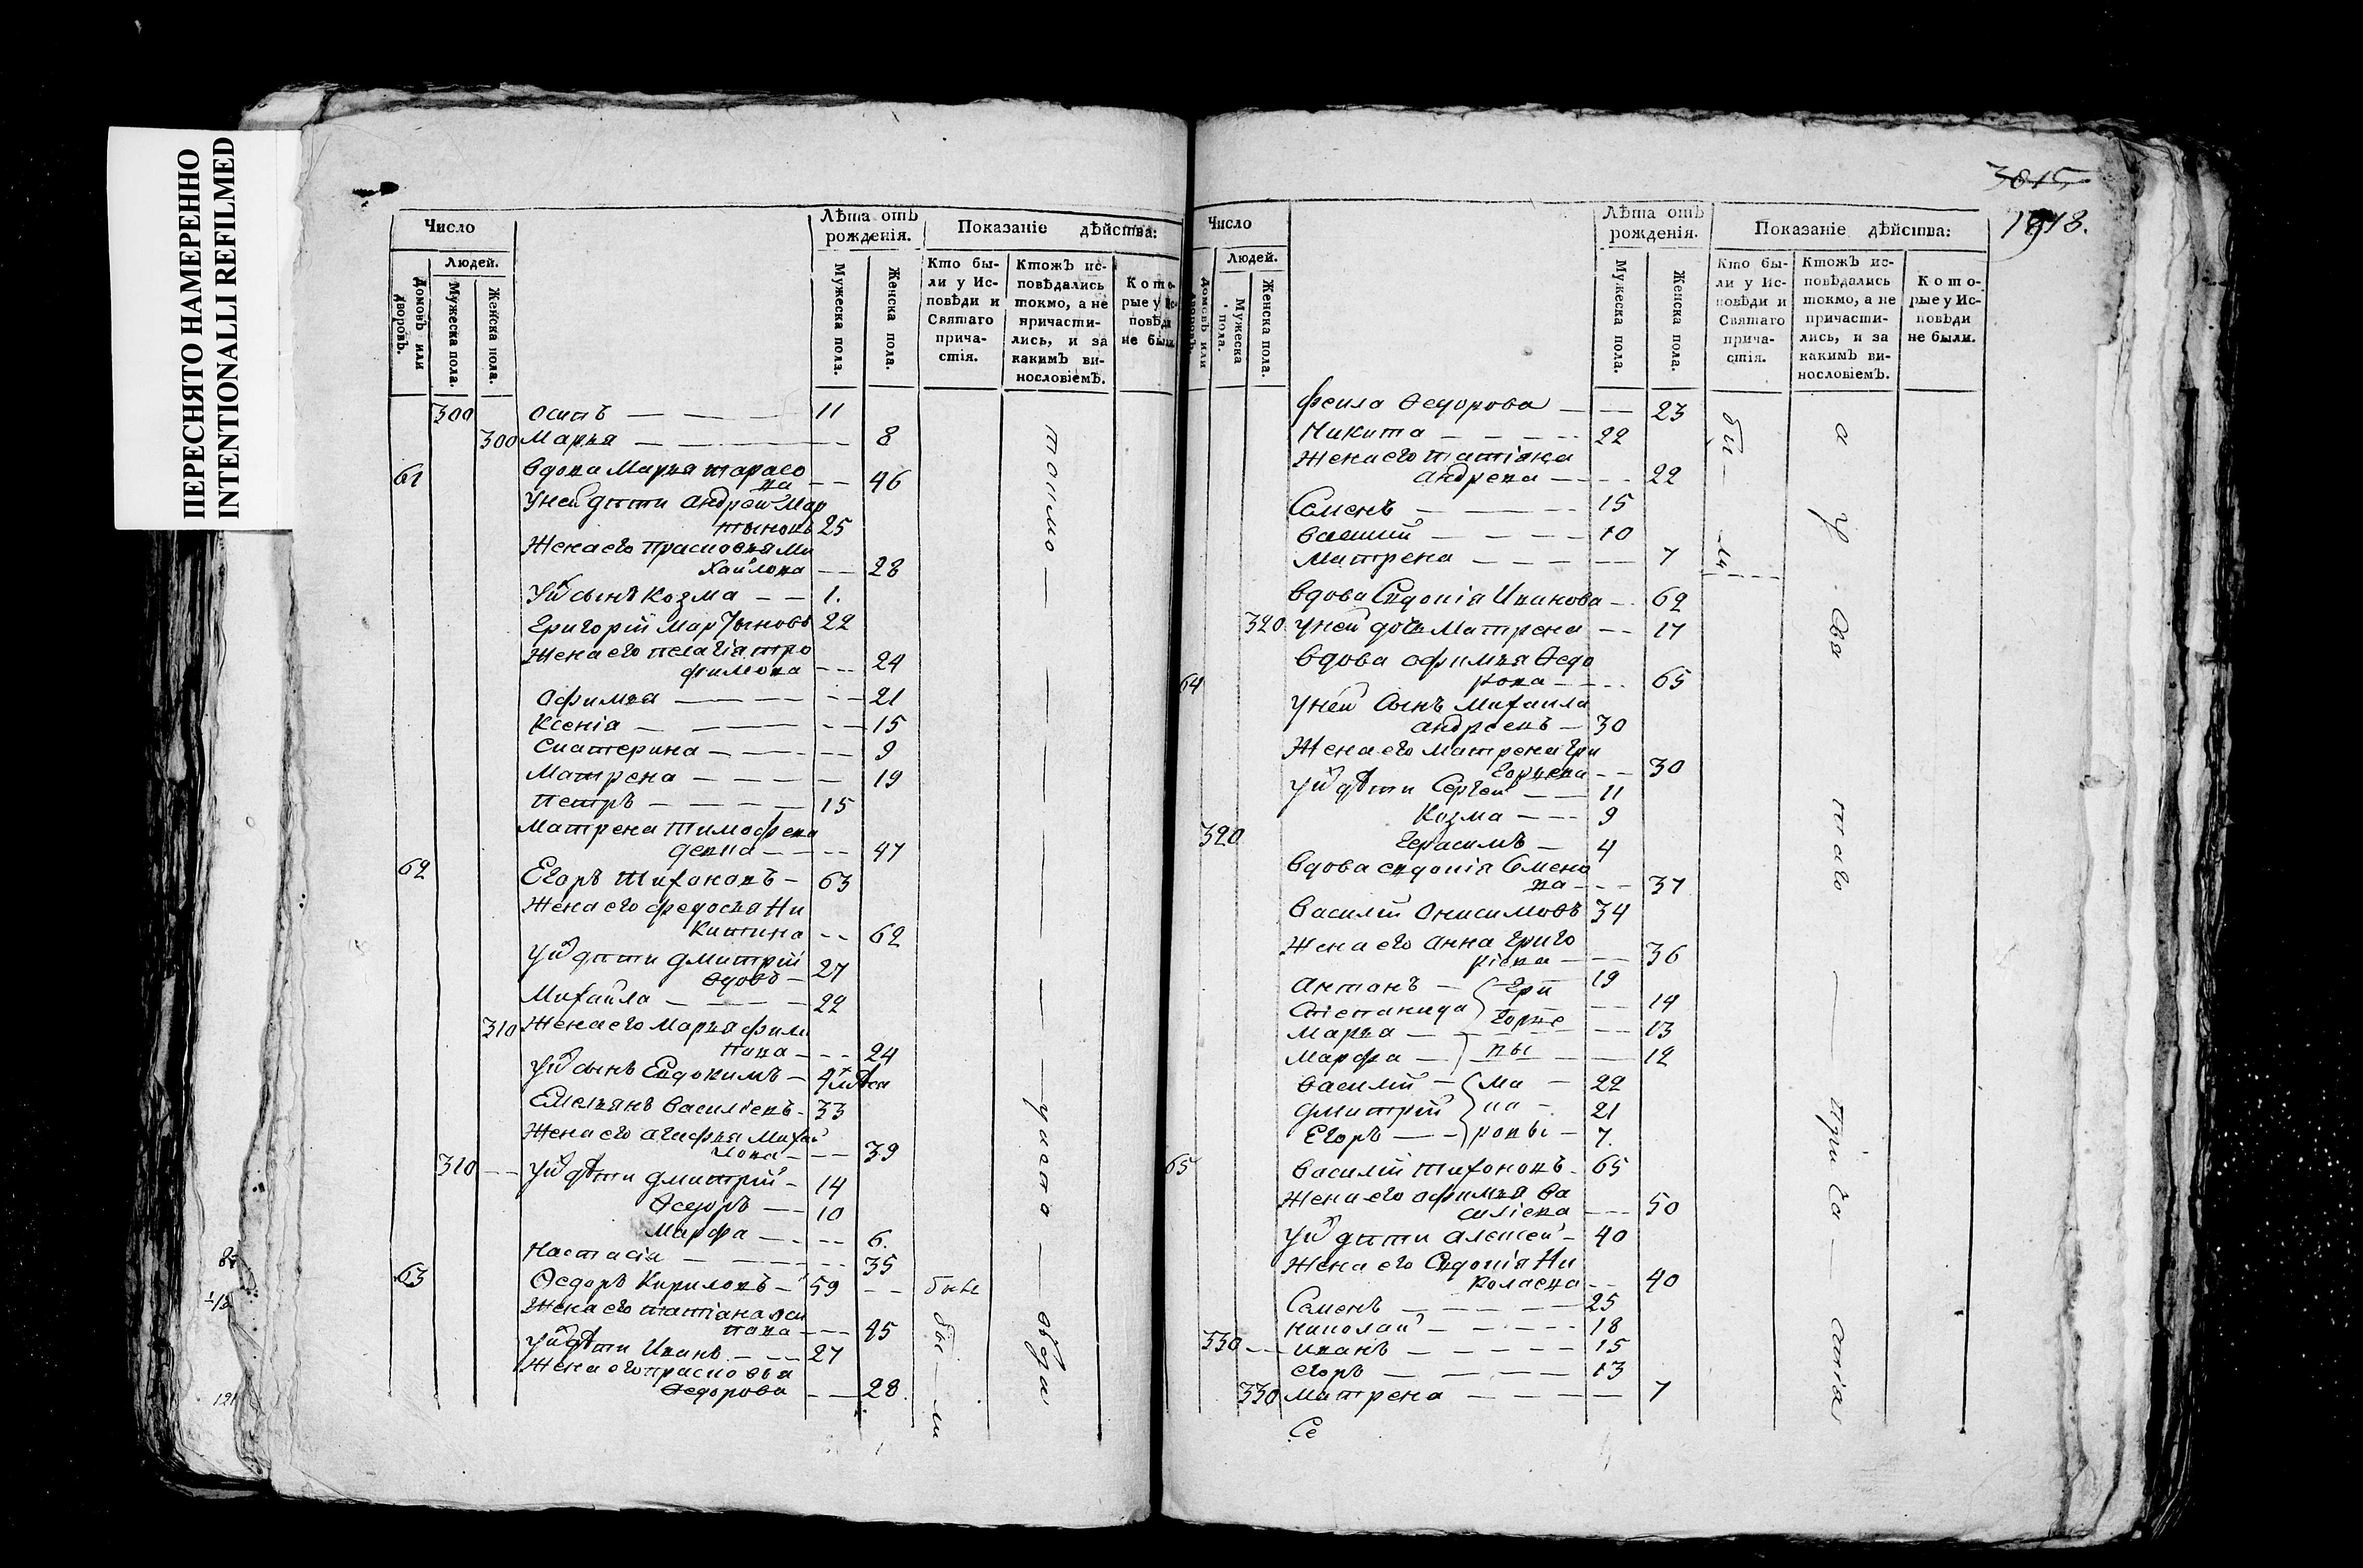 ПЕРЕСНЯТО НАМЕРЕННО
INTENTIONALLI REFILMED
Число
Лѣта отъ рожденія.
Показаніе дѣйства:
Людей.
Домовъ или дворовъ.
Мужеска пола.
Женска пола.
Мужеска пола.
Женска пола.
Кто были у Исповѣди и Святаго причастія.
Ктожъ исповѣдались токмо, а не причастились, и за какимъ винословіемъ.
Которые у Исповѣди не были.
300 Осипъ 11
300 Марья 8
61 Вдова Марья Тарасо
ва 46
У ней дѣти Андрей Мар
тыновъ 25
Жена его Прасковья Ми
хайлова 28
У й сынъ Козма 1.
Григорій Мартыновъ 22
Жена его Пелагіа Тро
фимова 24
Офимья 21
Ксенія 15
Катерина 9
Матрена 19
Петръ 15
Матрена Тимофеева
47
62 Егоръ Тихоновъ 63
Жена его Федосья Ни
китина 62
У й дѣти Дмитрій
27
Михайла 22
310 Жена его Марья Фили
пова 24
У й сынъ Евдокимъ
Емельянъ Василіевъ 33
Жена его Агафья Михай
лова 39
310 У й дѣти Дмитрій 14
Ѳедоръ 10
Марфа 6.
Настасіа 35
63 Ѳедоръ Кириловъ 59 бывъ
Жена его Татіана
45
У й дѣти Иванъ 27
Жена его Прасковья
Ѳедорова 28.
токмо
3015
1918.
Число
Лѣта отъ рожденія.
Показаніе дѣйства:
Людей.
Домовъ или дворовъ.
Мужеска пола.
Женска пола.
Мужеска пола.
Женска пола.
Кто были у Исповѣди и Святаго причастія.
Ктожъ исповѣдались токмо, а не причастились, и за какимъ винословіемъ.
Которые у Исповѣди не были.
Ѳедорова 23
Никита 22
Жена его Татіяна
Андрева 22
Семенъ 15
Василій 10
Матрена 7
Вдова Евдокія Иванова 62
320 У ней дочь Матрена 17
Вдова Офимья Ѳедо
64 рова 65
У ней сынъ Михаила
Андреевъ 30
Жена его Матрена Гри
горьева 30
У й дѣти Сергей 11
Козма 9
320 Герасимъ 4
Вдова Евдокія Семено
ва 37
Василій Онисимовъ 34
Жена его Анна Григо
ріева 36
Антонъ Гри 19
Степанида горье 14
Марья 13
Марфа вы 12
Василій Ма 22
Дмитрій ка 21
Егоръ ровы 7.
65 Василій Тихоновъ 65
Жена его Офимья Ва
силіева 50
У й дѣти Алексей 40
Жена его Евдокія Ни
колаева 40
Семенъ 25
Николай 18
330 Иванъ 15
Егоръ 13
330 Матрена 7
Се